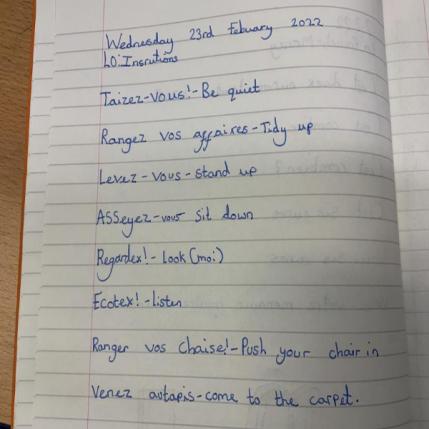 Wednesday 23rd February 2022
LO: Insrutions
Taizez-vous!-Be quiet
Rangez vos affaires-Tidy up
Levez-vous-stand up
ASSeyez-vous sit down
Regardex!-Look (moi)
Ecotex!-listen
Ranger vos Chaise!-Push your chair in
Venez autapis-come to the carpet.